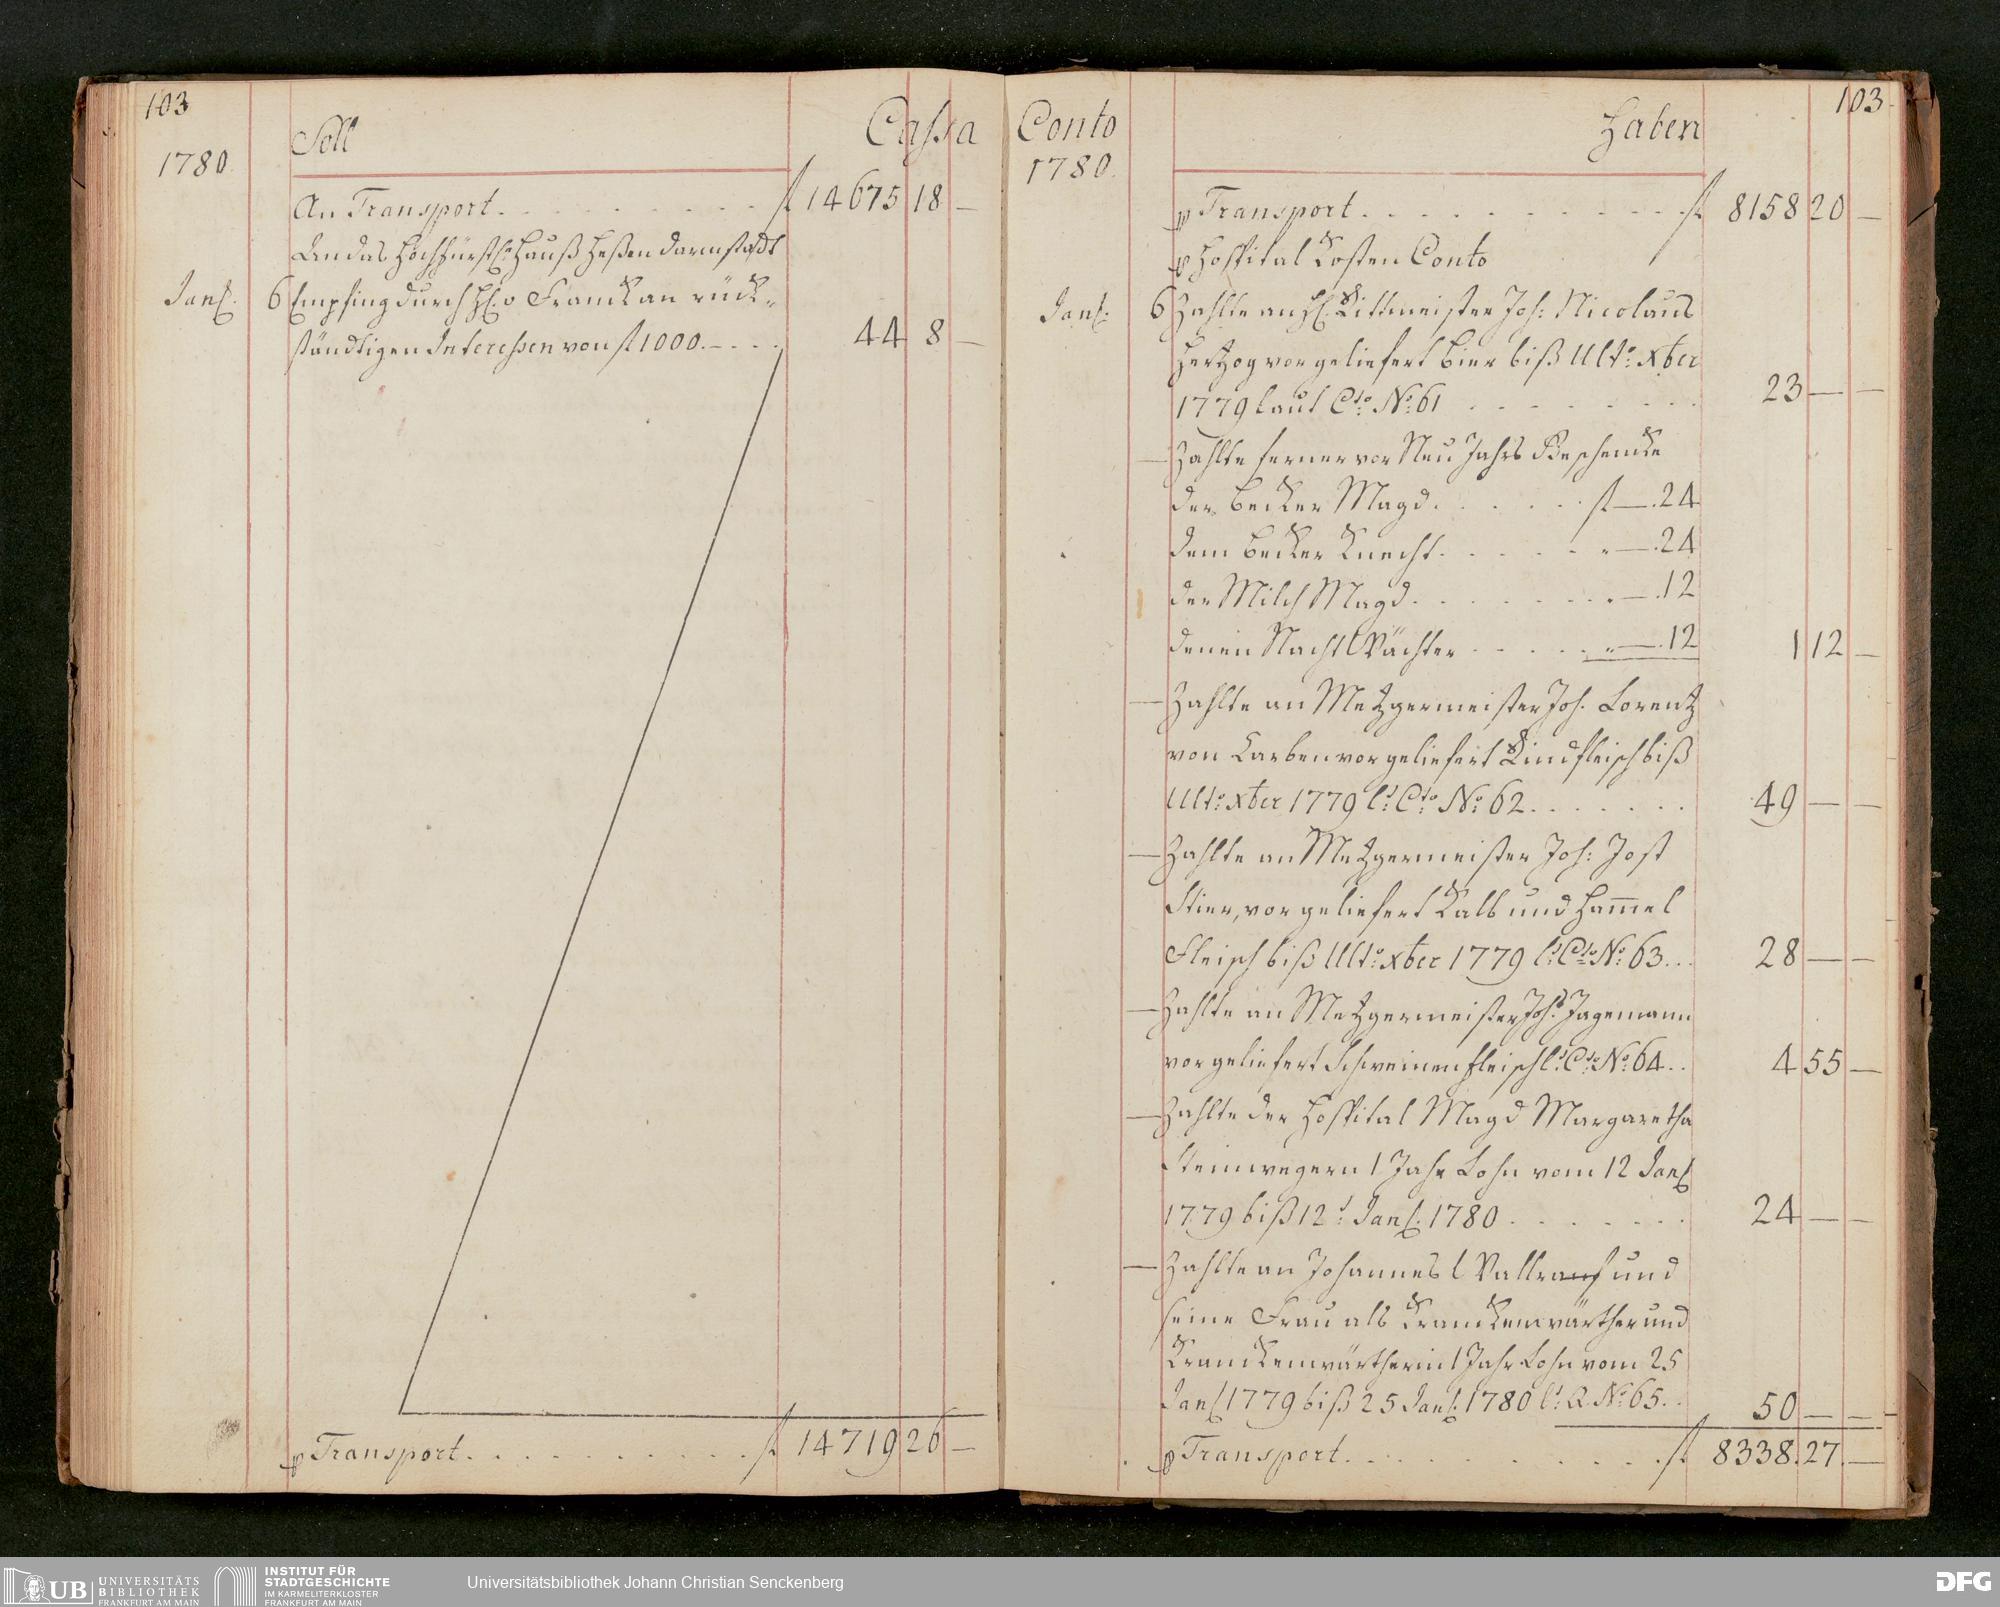 103
Soll
Cassa
1780
An Transport . . . . . . . . . fl 14675 18 —
An das Hochfürstl. Hauß Heßen Darmstadt
Jan. 6 Empfing durch H. v Franck an rück-
ständigen Interessen von fl 1000. — . . . 44 8 —
p Transport . . . . . . . . . fl 14719 26 —
Conto
Haben
103
1780.
p Transport . . . . . . . . . fl 8158 20 —
p Hospital Kosten Conto
Jan. 6 Zahlte an H. Rittmeister Joh: Nicolaus
Hertzog vor geliefert Bier biß Ulto: xber
1779 laut Cto: No: 61 . . . . . . 23 — —
— Zahlte ferner vor Neu Jahrs Geschencke
der Becker Magd . . . . . fl —. 24
dem Becker Knecht . . . . . " —. 24
der Milch Magd . . . . . . " —. 12
denen Nacht Wächter . . . . . " —. 12 1 12 —
— Zahlte an Metzgermeister Joh. Lorentz
von Carben vor geliefert Rindfleisch biß
Ulto: xber 1779 lt: Cto: No: 62 . . . . . . 49 — —
— Zahlte an Metzgermeister Joh: Jost
Stier, vor geliefert Kalb und Hammel
Fleisch biß Ulto: xber 1779 lt: Cto: No: 63 . . . 28 — —
— Zahlte an Metzgermeister Johs: Jagemann
vor geliefert Schweinen fleisch lt: Cto: No: 64 . . 4 55 —
— Zahlte der Hospital Magd Margaretha
Steinwegern 1 Jahr Lohn vom 12 Jan.
1779 biß 12t: Jan. 1780 . . . . . . 24 — —
— Zahlte an Johannes Wallrauf und
seine Frau als Kranckenwärther und
Kranckenwärtherin 1 Jahr Lohn vom 25
Jan. 1779 biß 25 Jan. 1780 lt: Q. No: 65 . . 50 — —
p Transport . . . . . . . . . fl 8338. 27. —
UB UNIVERSITÄTS
BIBLIOTHEK
FRANKFURT AM MAIN
INSTITUT FÜR
STADTGESCHICHTE
IM KARMELITERKLOSTER
FRANKFURT AM MAIN
Universitätsbibliothek Johann Christian Senckenberg
DFG